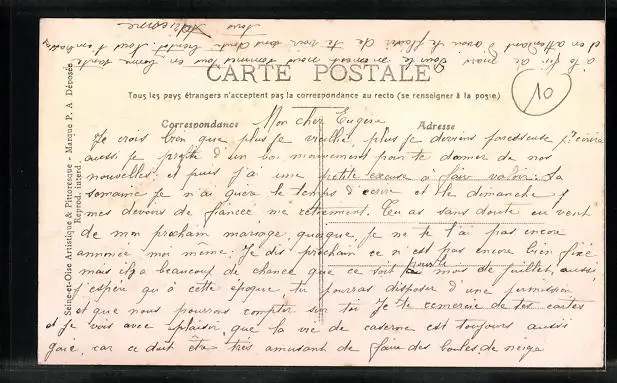 CARTE POSTALE
Tous les pays étrangers n'acceptent pas la correspondance au recto (se renseigner à la poste)
Correspondance
Adresse
10
Seine-et-Oise Artistique & Pittoresque - Marque P. A Déposée
Reprod. interd.
Mon cher Eugène
Je crois bien que plus je vieillis, plus je deviens paresseuse pr écrire
aussi je profite d'un bon mouvement pour te donner de nos
nouvelles; et puis j'ai une petite excuse à faire valoir: La
semaine je n'ai guère le temps d'écrire et le dimanche
mes devoirs de fiancée me retiennent. Tu as sans doute eu vent
de mon prochain mariage quoique je ne te l'ai pas encore
annoncé moi même: Je dis prochain ce n'est pas encore bien fixé
mais il y a beaucoup de chance que ce soit pour le mois de juillet, aussi
j'espère qu'à cette époque tu pourras disposer d'une permission
et que nous pourrons compter sur toi Je te remercie de tes cartes
et je vois avec plaisir que la vie de caserne est toujours aussi
gaie, car ce doit être très amusant de faire des boules de neige
à la fin de mars Nous sommes tous en bonne santé
et en attendant d'avoir le plaisir de te voir sans doute bientôt Nous t'embrassons
tous